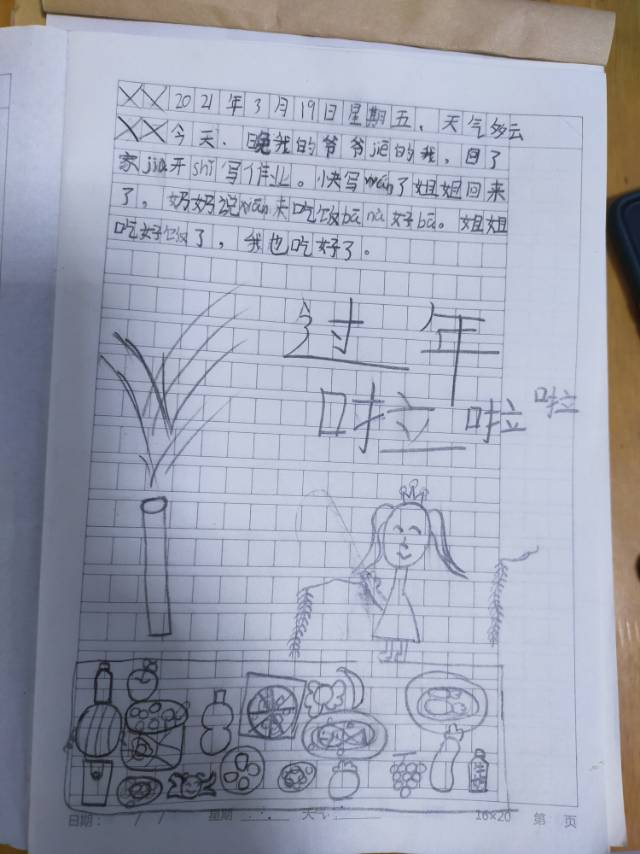 XX2021年3月19日星期五,天气多云
XX今天,晚我的爷爷jiē的我,回了
家jiu开shǐ写作业。快写wán了姐姐回来
了,奶奶说wǎn来吃饭bā nǎ好bā。姐姐
吃好饭了,我也吃好了。
过年
啦啦啦
日期: / / 星期 天气: 16×20 第 页